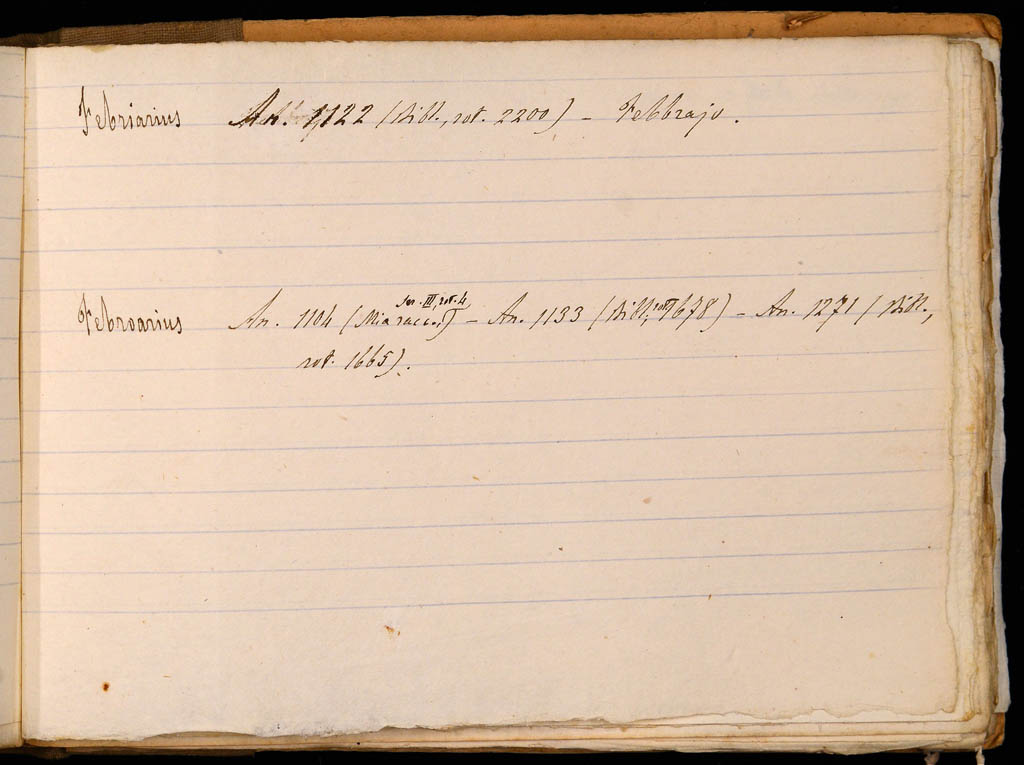 Febriarius An. 1122 (Bibl., rot. 2200) - Febbrajo.
Febroarius An. 1104 (Mia racc., Ser. III, rot. 4) - An. 1133 (Bibl., rot. 1678) - An. 1271 (Bibl.,
rot. 1665).